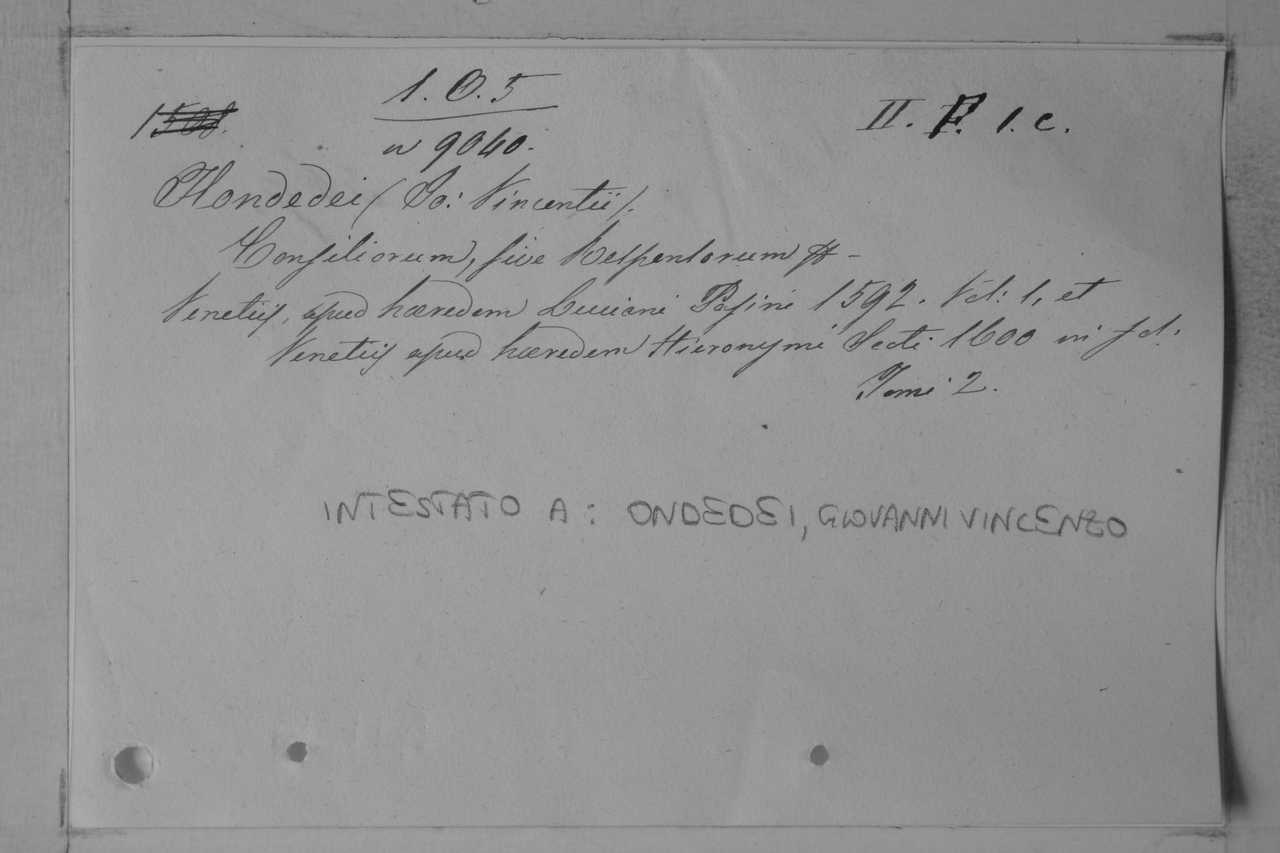 1. O. 5
II. F. 1. c.
n 9040.
Hondedei (Jo: Vincentii).
Consiliorum, sive Responsorum
Venetiis, apud hæredem Luciani Pasini 1592. Vol: 1, et
Venetiis apud hæredem Hieronymi Scoti 1600 in fol:
Tomi 2.
INTESTATO A: ONDEDEI, GIOVANNI VINCENZO